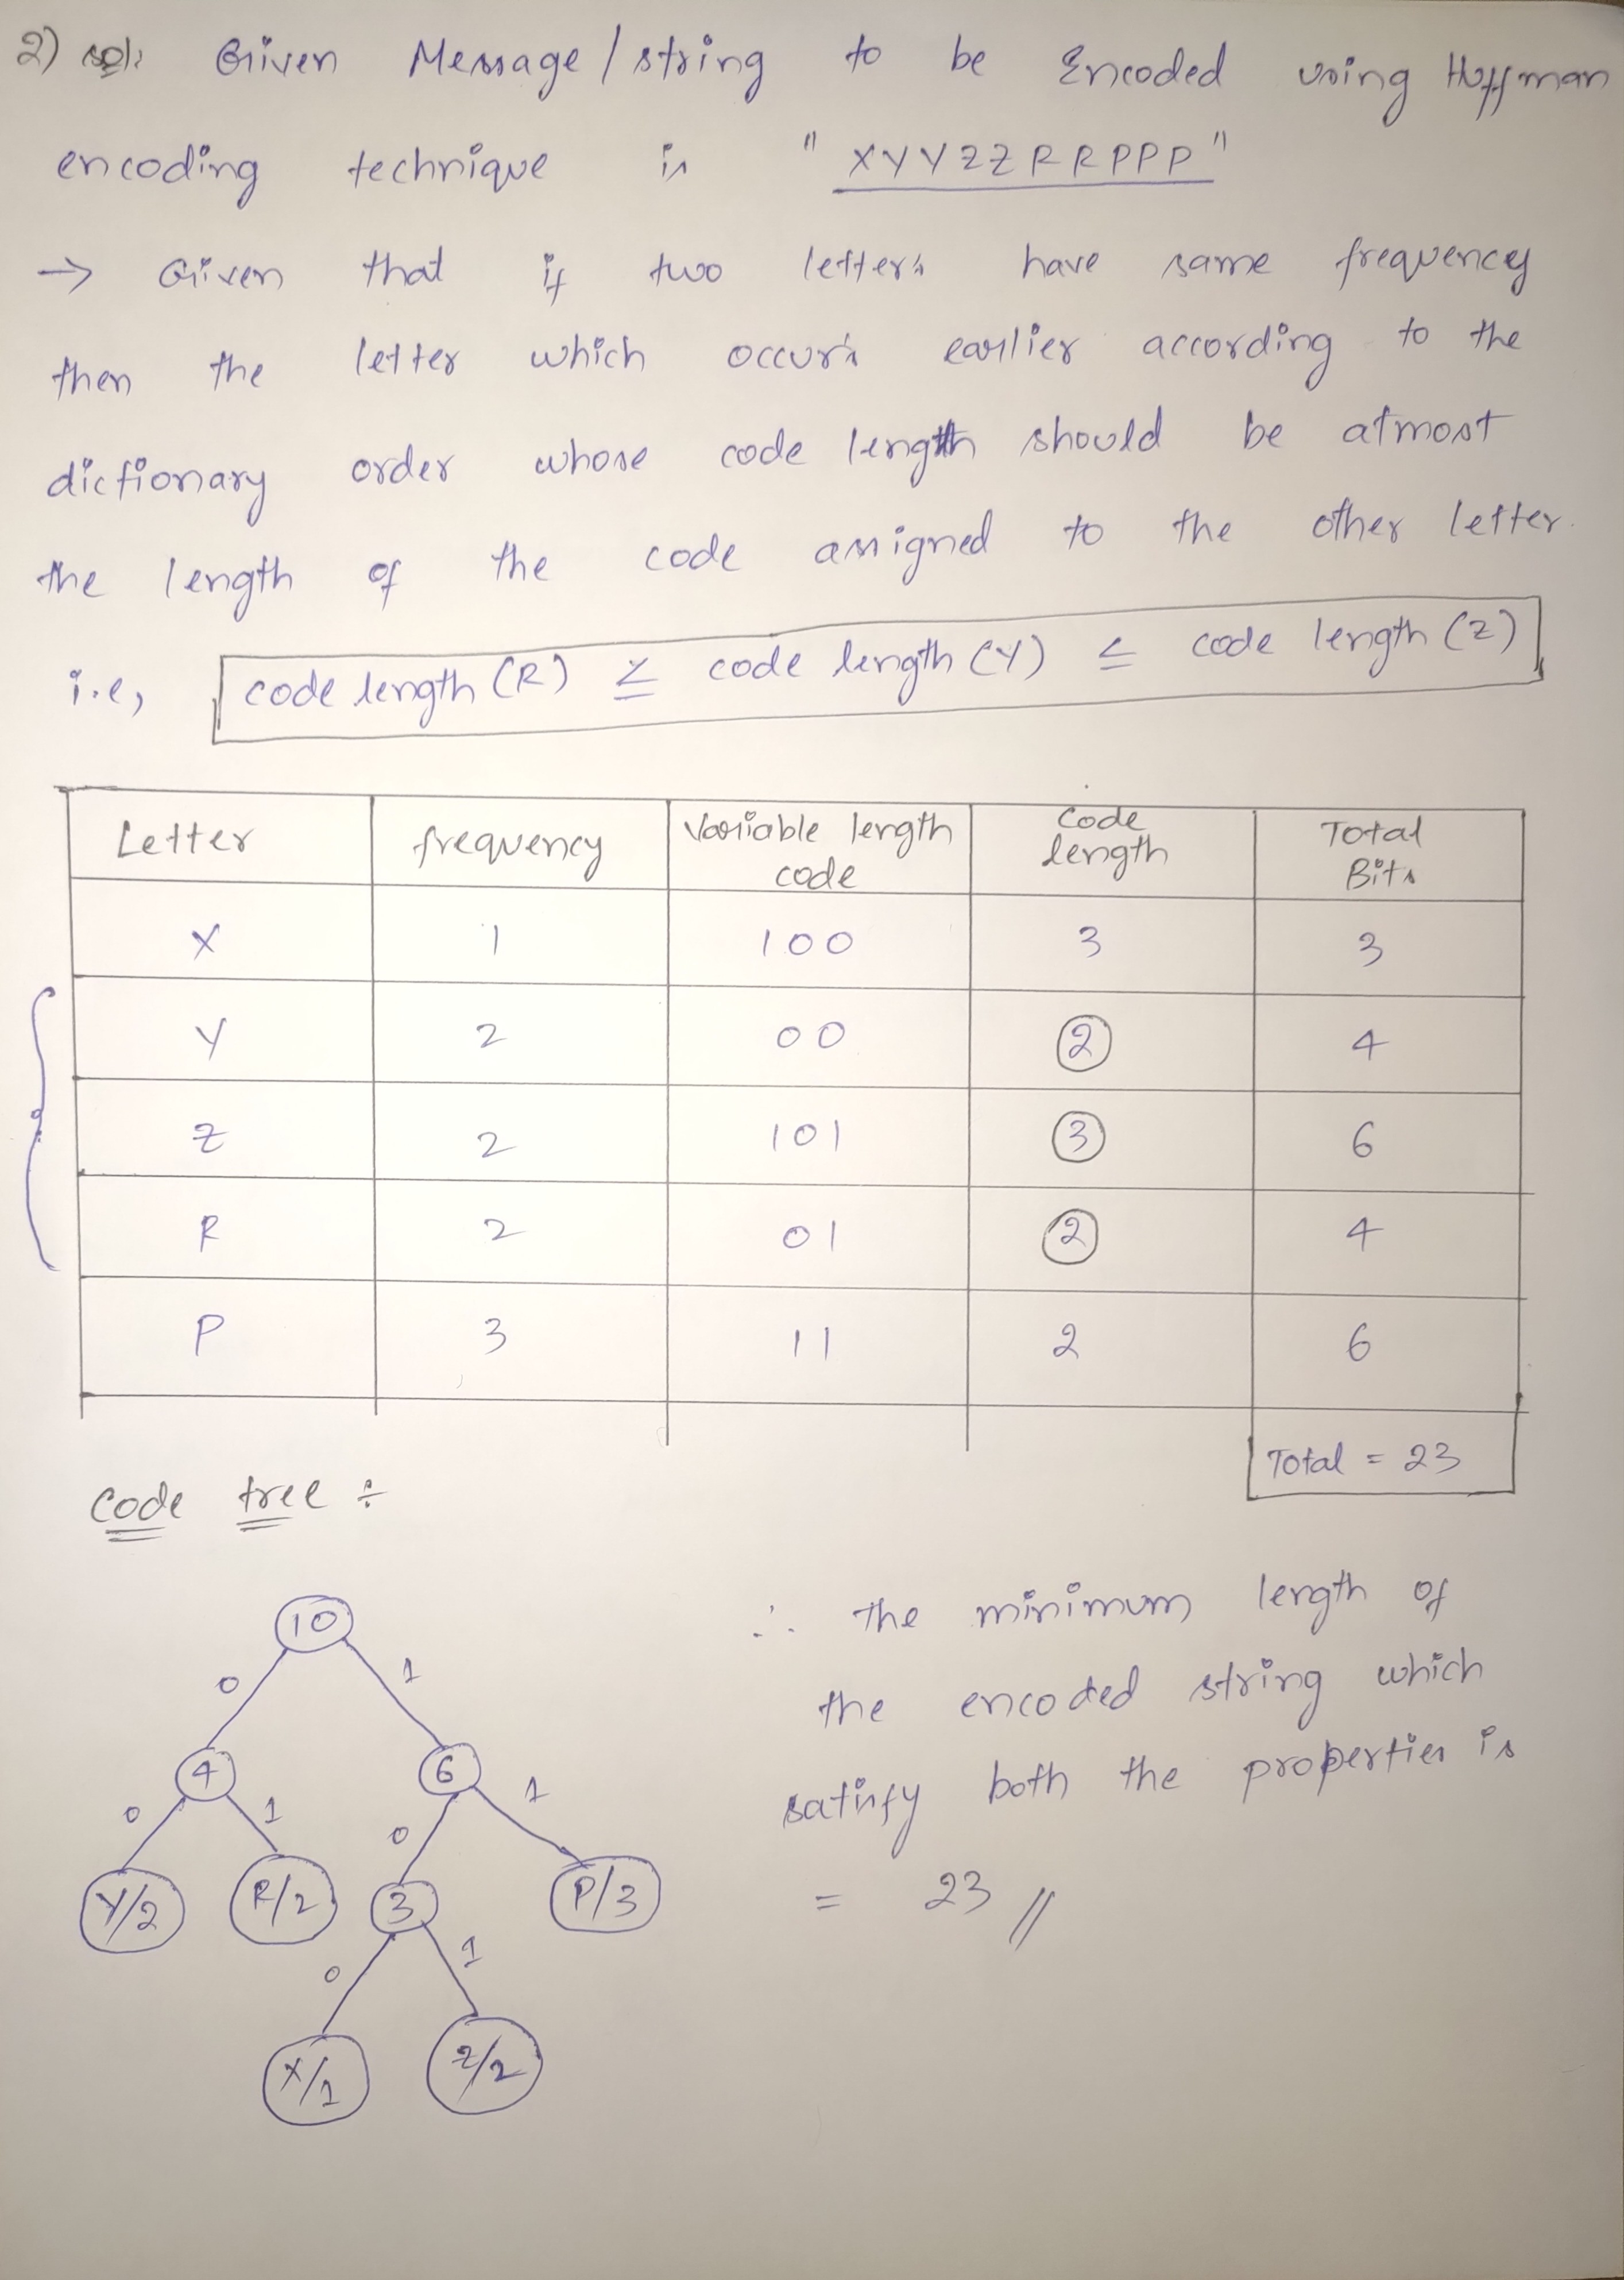 2) sol: Given Message / string to be Encoded using Huffman
encoding technique is "XYYZZRRPPP"
→ Given that if two letters have same frequency
then the letter which occurs earlier according to the
dictionary order whose code length should be atmost
the length of the code assigned to the other letter.
i.e, code length (R) ≤ code length (Y) ≤ code length (Z)
Letter frequency Variable length code Code length Total Bits
X 1 100 3 3
Y 2 00 2 4
Z 2 101 3 6
R 2 01 2 4
P 3 11 2 6
Total = 23
Code tree ÷
10
0 1
4 6
0 1 0 1
Y/2 R/2 3 P/3
0 1
X/1 Z/2
∴ The minimum length of
the encoded string which
satisfy both the properties is
= 23 //